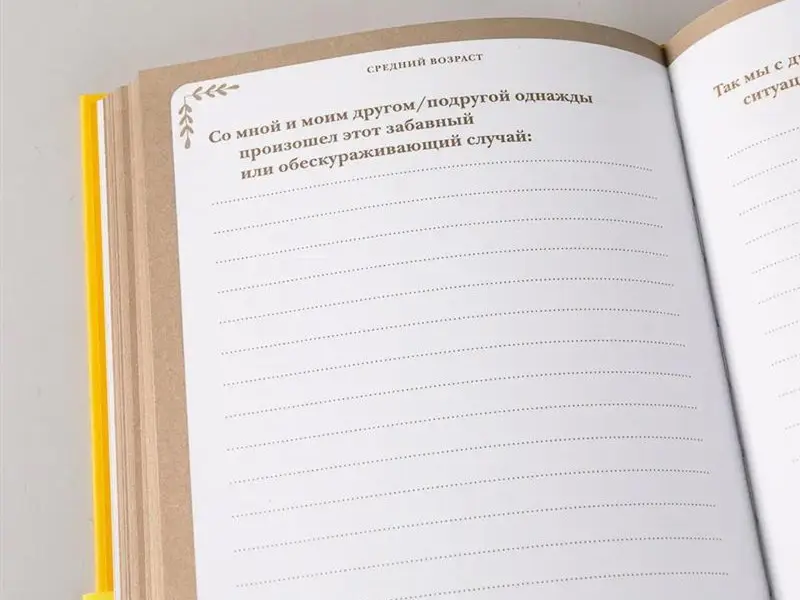 СРЕДНИЙ ВОЗРАСТ
Со мной и моим другом/подругой однажды
произошел этот забавный
или обескураживающий случай:
Так мы с